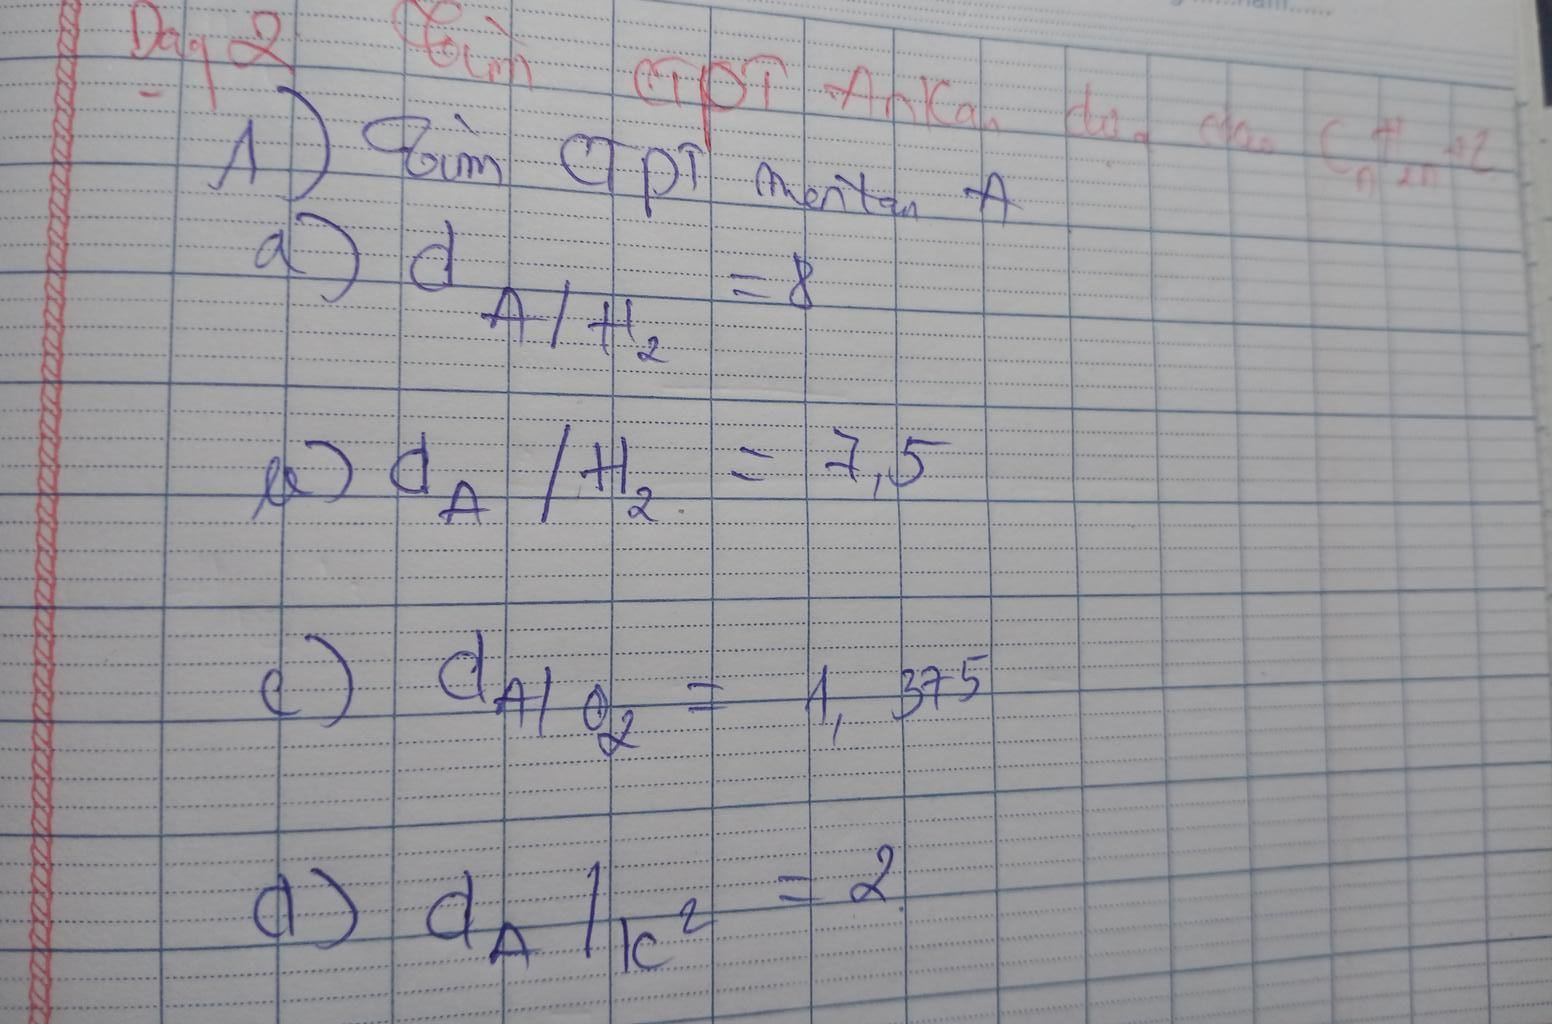 Dạng 2 Tìm CTPT Ankan dựa vào CnH2n+2
1) Tìm CTPT mentan A
a) d A/H2 = 8
b) dA/H2 = 7,5
c) dA/O2 = 1,375
d) dA/k2 = 2